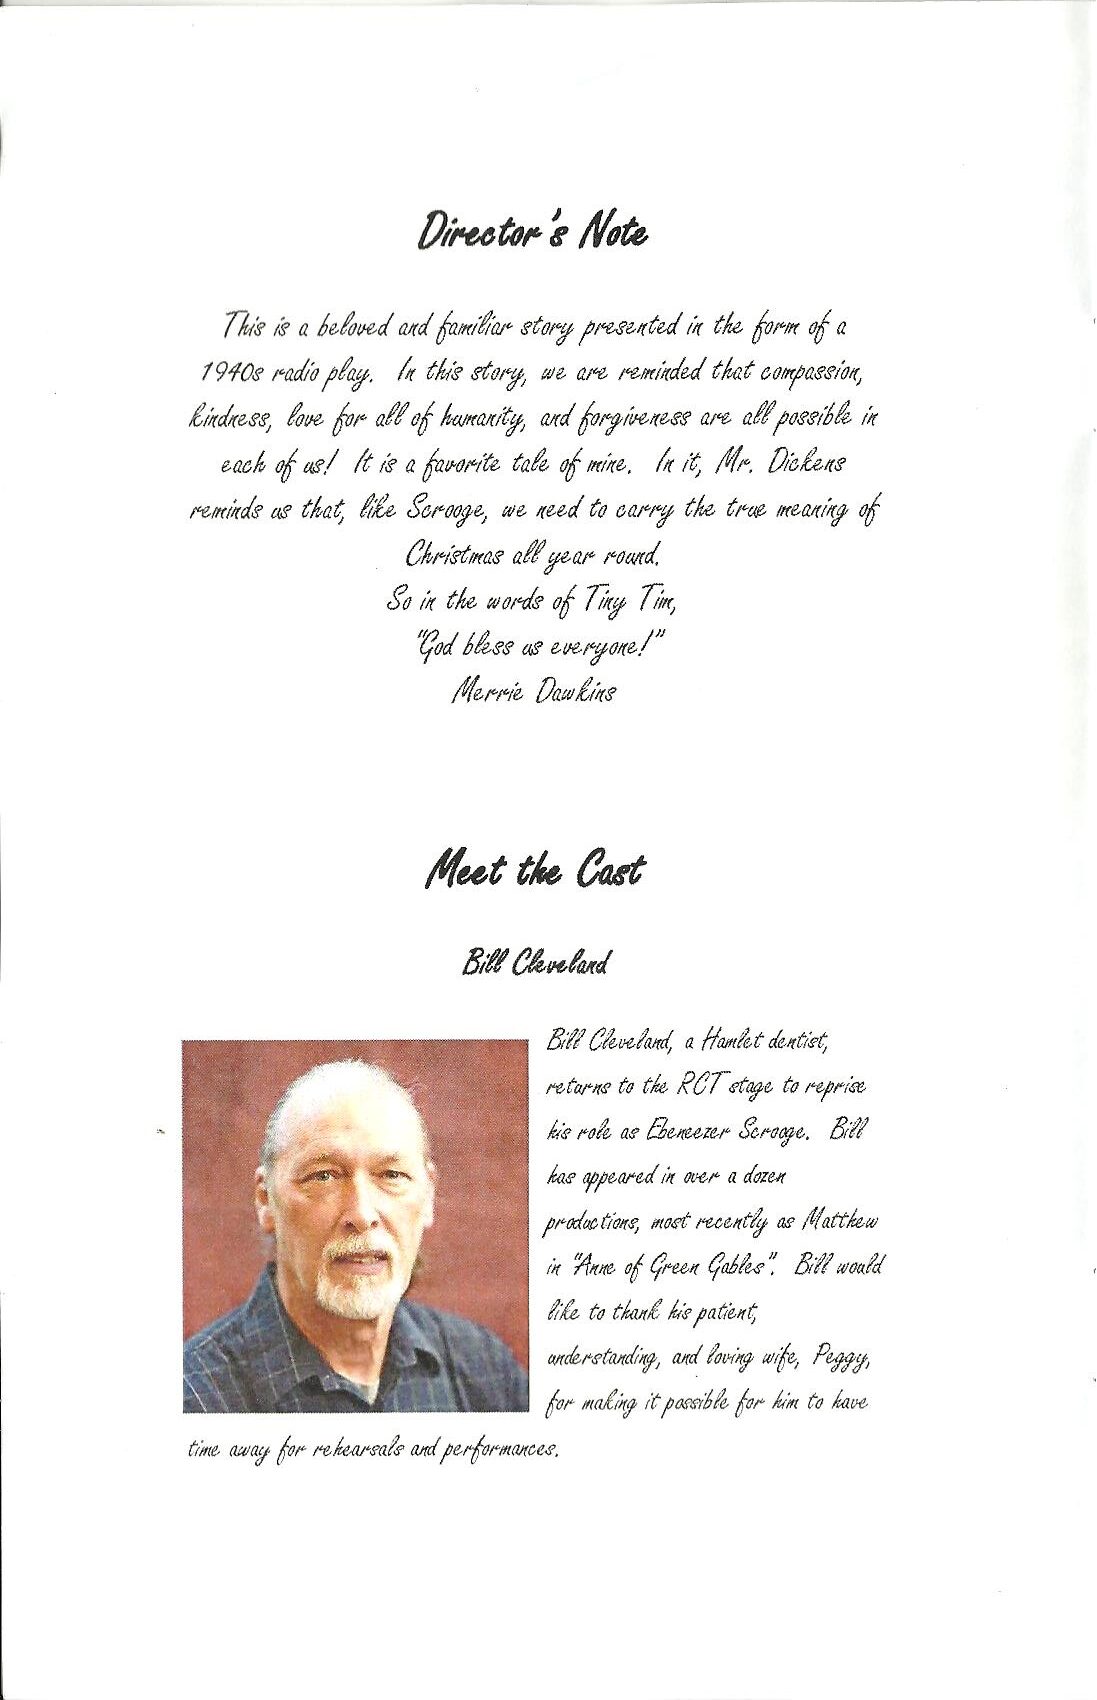 Director's Note
This is a beloved and familiar story presented in the form of a
1940s radio play. In this story, we are reminded that compassion,
kindness, love for all of humanity, and forgiveness are all possible in
each of us! It is a favorite tale of mine. In it, Mr. Dickens
reminds us that, like Scrooge, we need to carry the true meaning of
Christmas all year round.
So in the words of Tiny Tim,
"God bless us everyone!"
Merrie Dawkins
Meet the Cast
Bill Cleveland
Bill Cleveland, a Hamlet dentist,
returns to the RCT stage to reprise
his role as Ebeneezer Scrooge. Bill
has appeared in over a dozen
productions, most recently as Matthew
in "Anne of Green Gables". Bill would
like to thank his patient,
understanding, and loving wife, Peggy,
for making it possible for him to have
time away for rehearsals and performances.